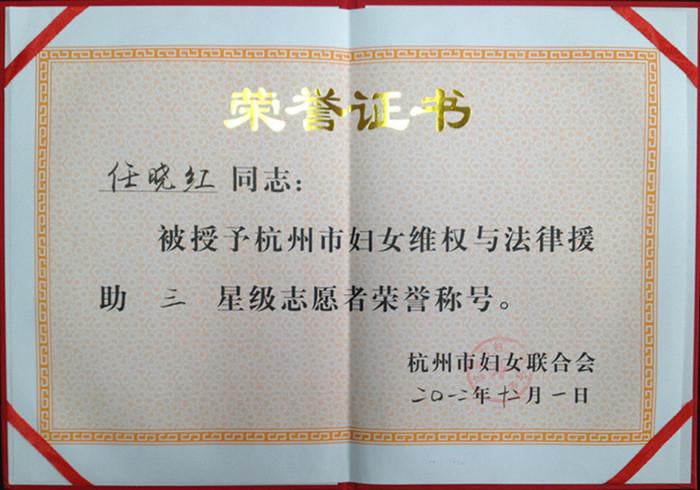 荣誉证书
任晓红 同志：
被授予杭州市妇女维权与法律援
助 三 星级志愿者荣誉称号。
杭州市妇女联合会
二〇一二年十二月一日